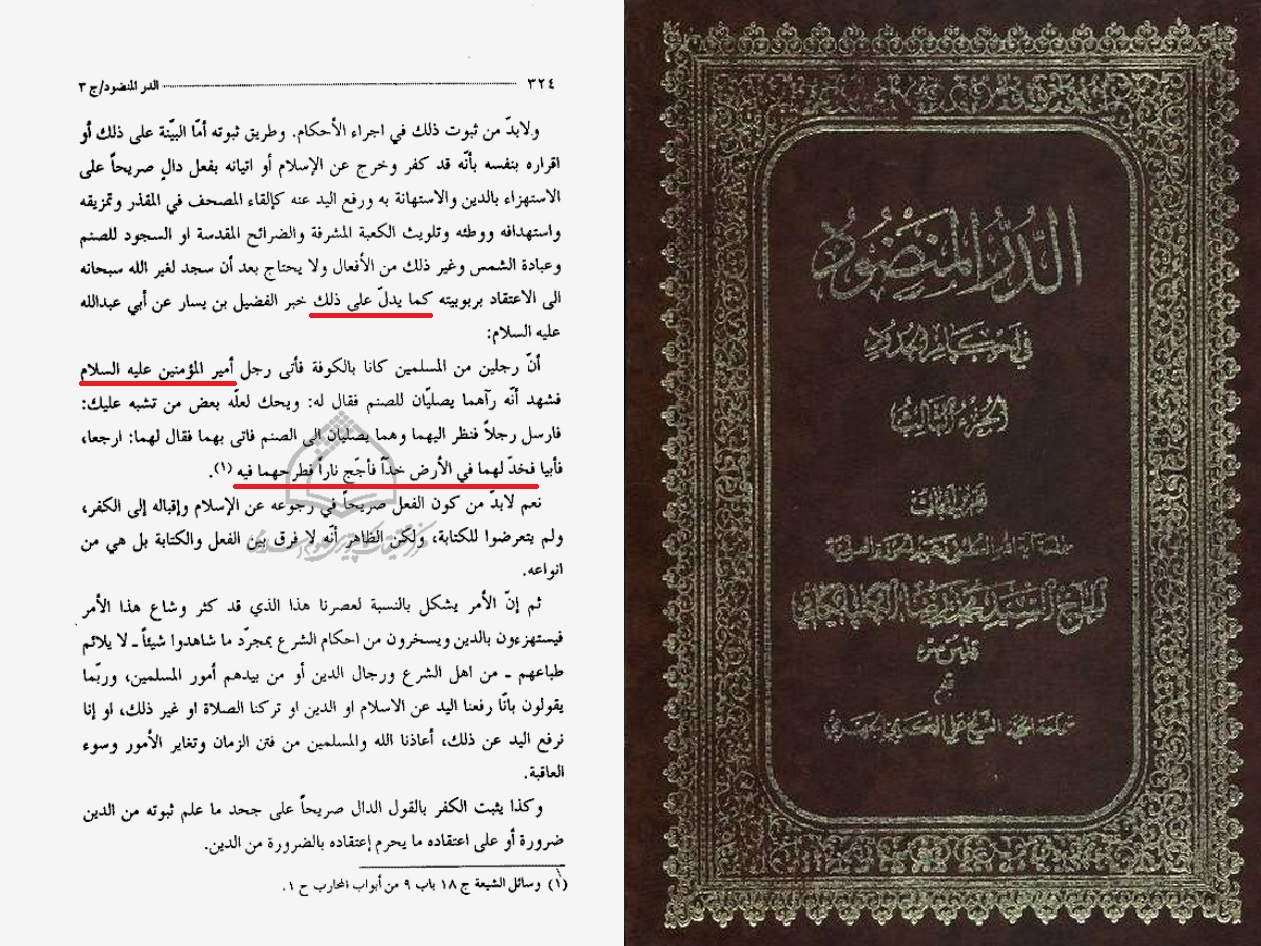 ٣٢٤ الدر المنضود/ج ٣
ولابدّ من ثبوت ذلك في اجراء الأحكام. وطريق ثبوته أمّا البيّنة على ذلك أو
اقراره بنفسه بأنّه قد كفر وخرج عن الإسلام أو اتيانه بفعل دالٍ صريحاً على
الاستهزاء بالدين والاستهانة به ورفع اليد عنه كإلقاء المصحف في المقذر وتمزيقه
واستهدافه ووطئه وتلويث الكعبة المشرفة والضرائح المقدسة او السجود للصنم
وعبادة الشمس وغير ذلك من الأفعال ولا يحتاج بعد أن سجد لغير الله سبحانه
الى الاعتقاد بربوبيته كما يدلّ على ذلك خبر الفضيل بن يسار عن أبي عبدالله
عليه السلام:
أنّ رجلين من المسلمين كانا بالكوفة فأتى رجل أمير المؤمنين عليه السلام
فشهد أنّه رآهما يصليّان للصنم فقال له: ويحك لعلّه بعض من تشبه عليك:
فارسل رجلاً فنظر اليهما وهما يصليان الى الصنم فاتى بهما فقال لهما: ارجعا،
فأبيا فخدّ لهما في الأرض خدّاً فأجّج ناراً فطرحهما فيه (١).
نعم لابدّ من كون الفعل صريحاً في رجوعه عن الإسلام وإقباله إلى الكفر،
ولم يتعرضوا للكتابة، ولكن الظاهر أنّه لا فرق بين الفعل والكتابة بل هي من
انواعه.
ثم إنّ الأمر يشكل بالنسبة لعصرنا هذا الذي قد كثر وشاع هذا الأمر
فيستهزءون بالدين ويسخرون من احكام الشرع بمجرّد ما شاهدوا شيئاً ـ لا يلائم
طباعهم ـ من اهل الشرع ورجال الدين أو من بيدهم أمور المسلمين، وربّما
يقولون بانّا رفعنا اليد عن الاسلام او الدين او تركنا الصلاة او غير ذلك، او إنا
نرفع اليد عن ذلك، أعاذنا الله والمسلمين من فتن الزمان وتغاير الأمور وسوء
العاقبة.
وكذا يثبت الكفر بالقول الدال صريحاً على جحد ما علم ثبوته من الدين
ضرورة أو على اعتقاده ما يحرم إعتقاده بالضرورة من الدين.
(١) وسائل الشيعة ج ١٨ باب ٩ من أبواب المحارب ح ١.
الدر المنضود
في أحكام الحدود
الجزء الثالث